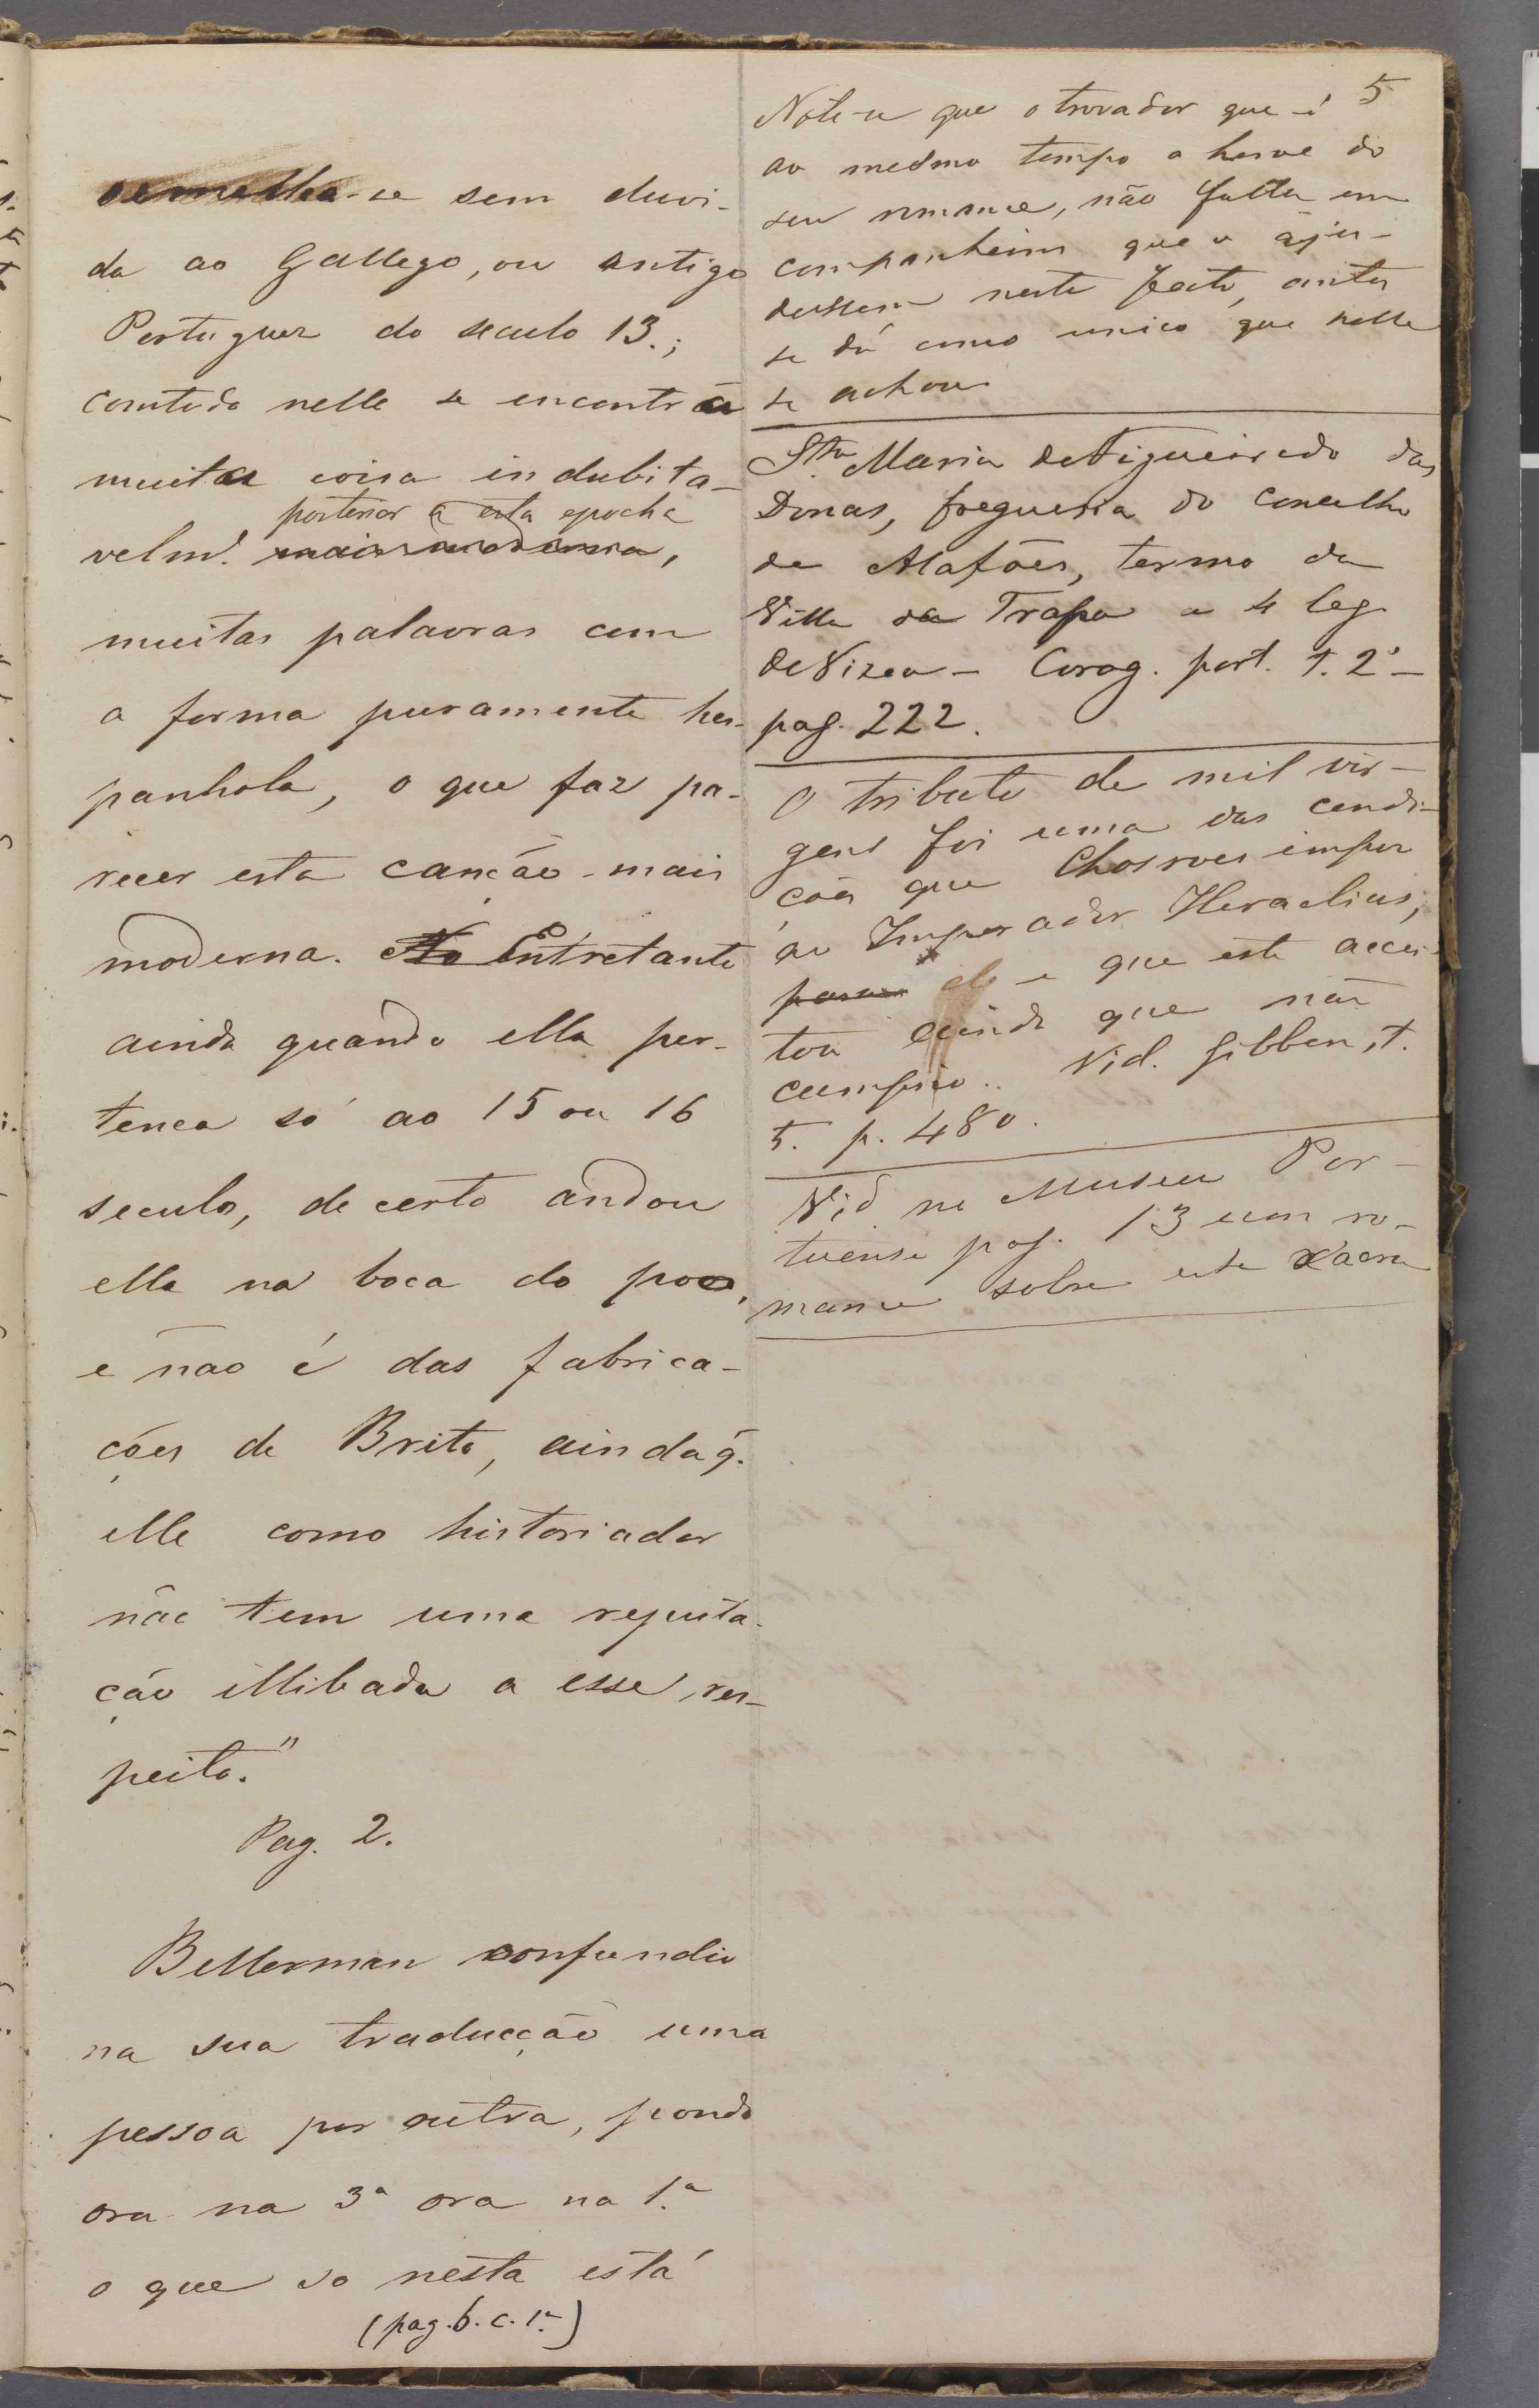 semelha-se sem duvi-
da ao Gallego, ou antigo
Portuguez do seculo 13.;
comtudo nelle se encontra
muita coisa indubita-
posterior a esta epocha
velm.e mais moderna,
muitas palavras com
a forma puramente hes-
panhola, o que faz pa-
recer esta canção mais
moderna. No Entretanto
ainda quando ella per-
tenca só ao 15 ou 16
seculo, de certo andou
ella na boca do povo,
e não é das fabrica-
ções de Brito, ainda q.
elle como historiador
não tem uma reputa-
ção illibada a esse res-
peito."
Pag. 2.
Bellerman confundio
na sua traducção uma
pessoa por outra, pondo
ora na 3ª ora na 1.ª
o que so nesta está
(pag. 6. c. 1.ª)
5
Note-se que o trovador que é
ao mesmo tempo o heroe do
seu romance, não falla em
companheiros que o aju-
dassem neste feito, antes
se dá como unico que nelle
se achou
Sta Maria de Figueiredo das
Donas, freguesia do concelho
de Alafões, termo da
Villa da Trapa a 4 leg.
de Vizeu - Corog. port. t. 2º -
pag. 222.
O tributo de mil vir-
gens foi uma das condi-
ções que Chosroes impoz
ao Imperador Heraclius,
e que este accei-
tou ainda que não
cumprio. Vid. Gibbon, t.
5. p. 480.
Vid no Museu Por-
tuense pag. 13 um ro-
mance sobre esta xacra